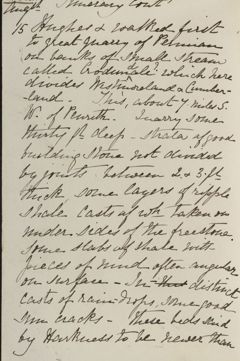 Itinerary Cont
15 Hughes & walked first
to great quarry of Penman
on banks of small stream
called Crodundale which here
divides Westmoreland & Cumber-
land. This, about 7 miles S.
W. of Penrith. Quarry some
thirty ft deep. Strata of good
building stone not divided
by joints between 2 & 3 ft
thick some layers of ripple
shale casts of wh. taken on
under sides of the freestone.
Some slabs of shale with
pieces of mud often angular
on surface - In distinct
casts of rain drops, some good
sun cracks - These beds said
by Harkness to be newer than